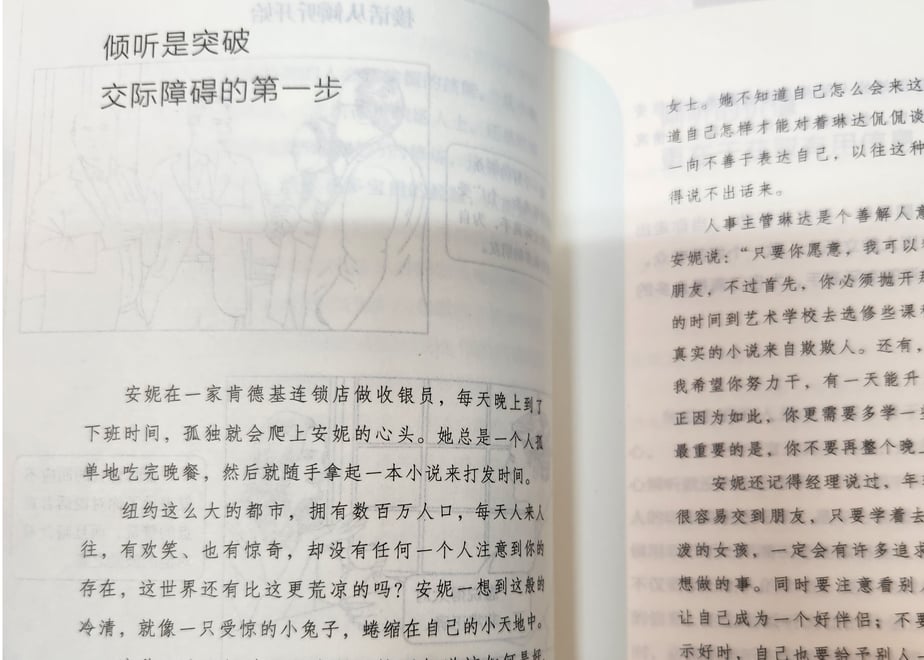 倾听是突破
交际障碍的第一步
安妮在一家肯德基连锁店做收银员，每天晚上到了
下班时间，孤独就会爬上安妮的心头。她总是一个人孤
单地吃完晚餐，然后就随手拿起一本小说来打发时间。
纽约这么大的都市，拥有数百万人口，每天人来人
往，有欢笑、也有惊奇，却没有任何一个人注意到你的
存在，这世界还有比这更荒凉的吗？安妮一想到这般的
冷清，就像一只受惊的小兔子，蜷缩在自己的小天地中。
女士。她不知道自己怎么会来这
道自己怎样才能对着琳达侃侃谈
一向不善于表达自己，以往这种
得说不出话来。
人事主管琳达是个善解人意
安妮说：“只要你愿意，我可以
朋友，不过首先，你必须抛开那
的时间到艺术学校去选修些课
真实的小说来自欺欺人。还有，
我希望你努力干，有一天能升
正因为如此，你更需要多学一
最重要的是，你不要再整个晚上
安妮还记得经理说过，年
很容易交到朋友，只要学着去
泼的女孩，一定会有许多追求
想做的事。同时要注意看别人
让自己成为一个好伴侣；不要
示好时，自己也要给予别人一